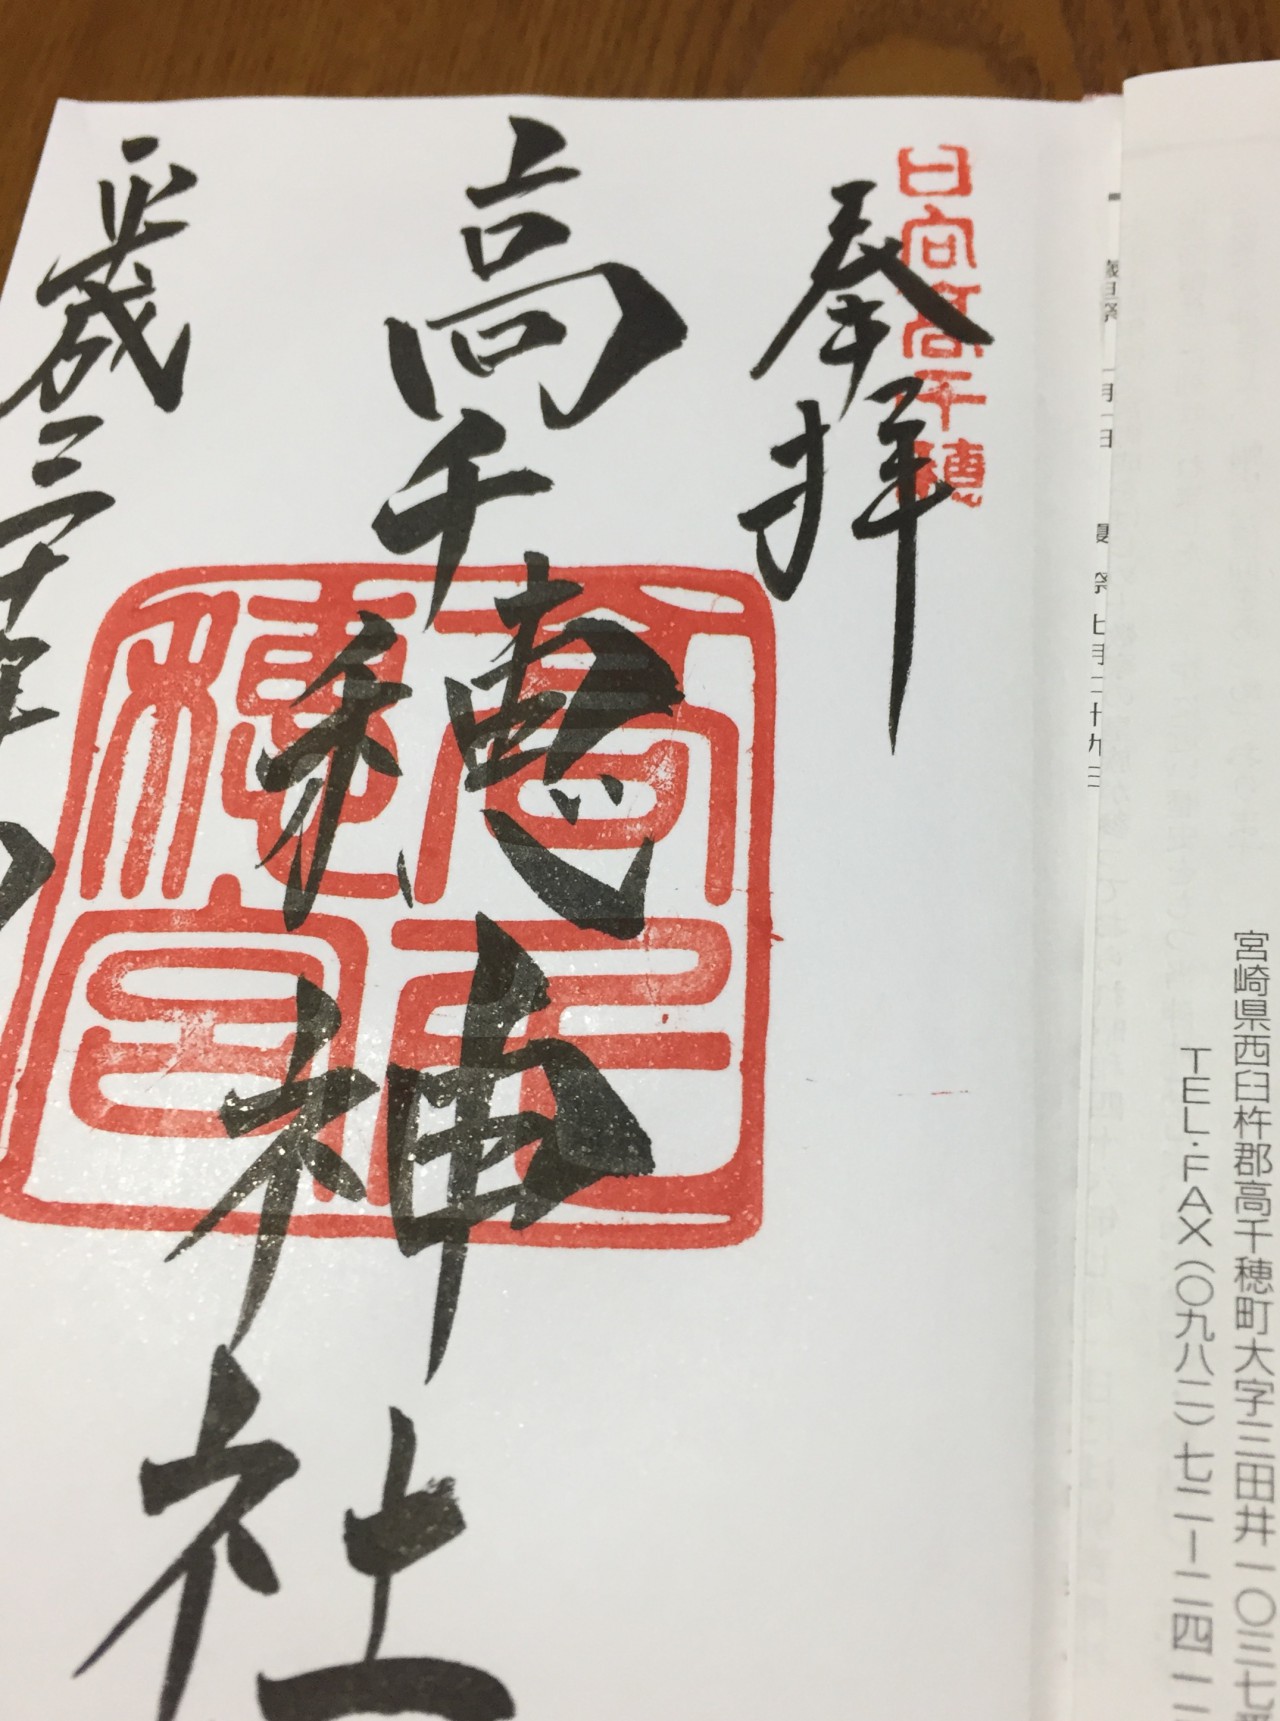 宮崎県西臼杵郡高千穂町大字三田井一〇三七番
TEL・FAX(〇九八二)七二ー二四一
歳旦祭 一月一日 夏祭 七月二十九日
日向高千穂
奉拝
高千穂神社
高千穂宮
平成三十年